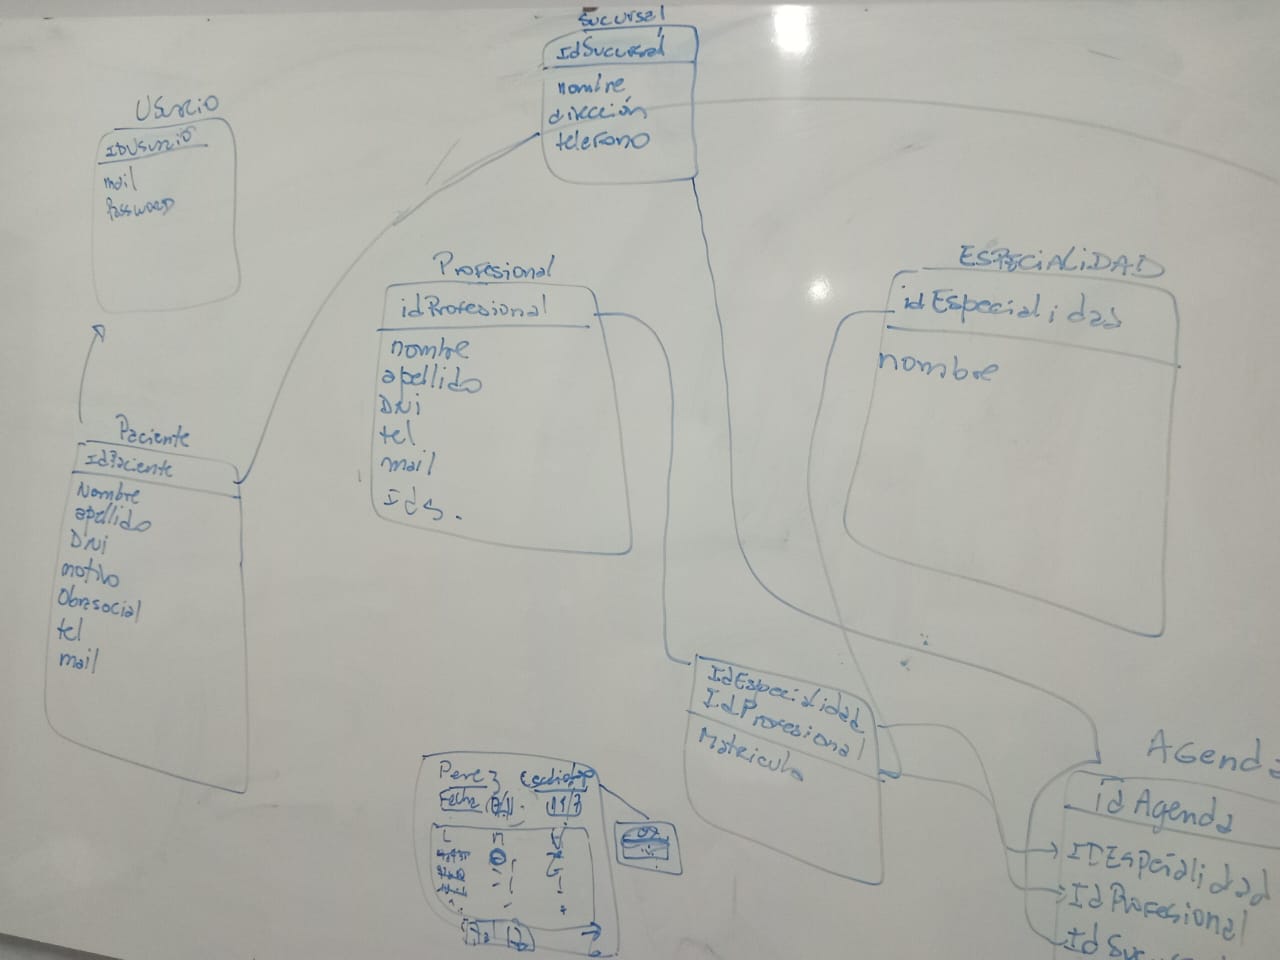 Sucursal
IdSucursal
nombre
dirección
telefono
USuario
IDUsuario
mail
Password
Profesional
idProfesional
nombre
apellido
DNi
tel
mail
Ids.
ESPECiALiDAD
idEspecialidad
nombre
Paciente
IdPaciente
Nombre
apellido
DNi
motivo
Obrasocial
tel
mail
IdEspecialidad
IdProfesional
Matricula
Perez
Fecha
L
Agenda
idAgenda
IDEspecialidad
IdProfesional
IdSuc